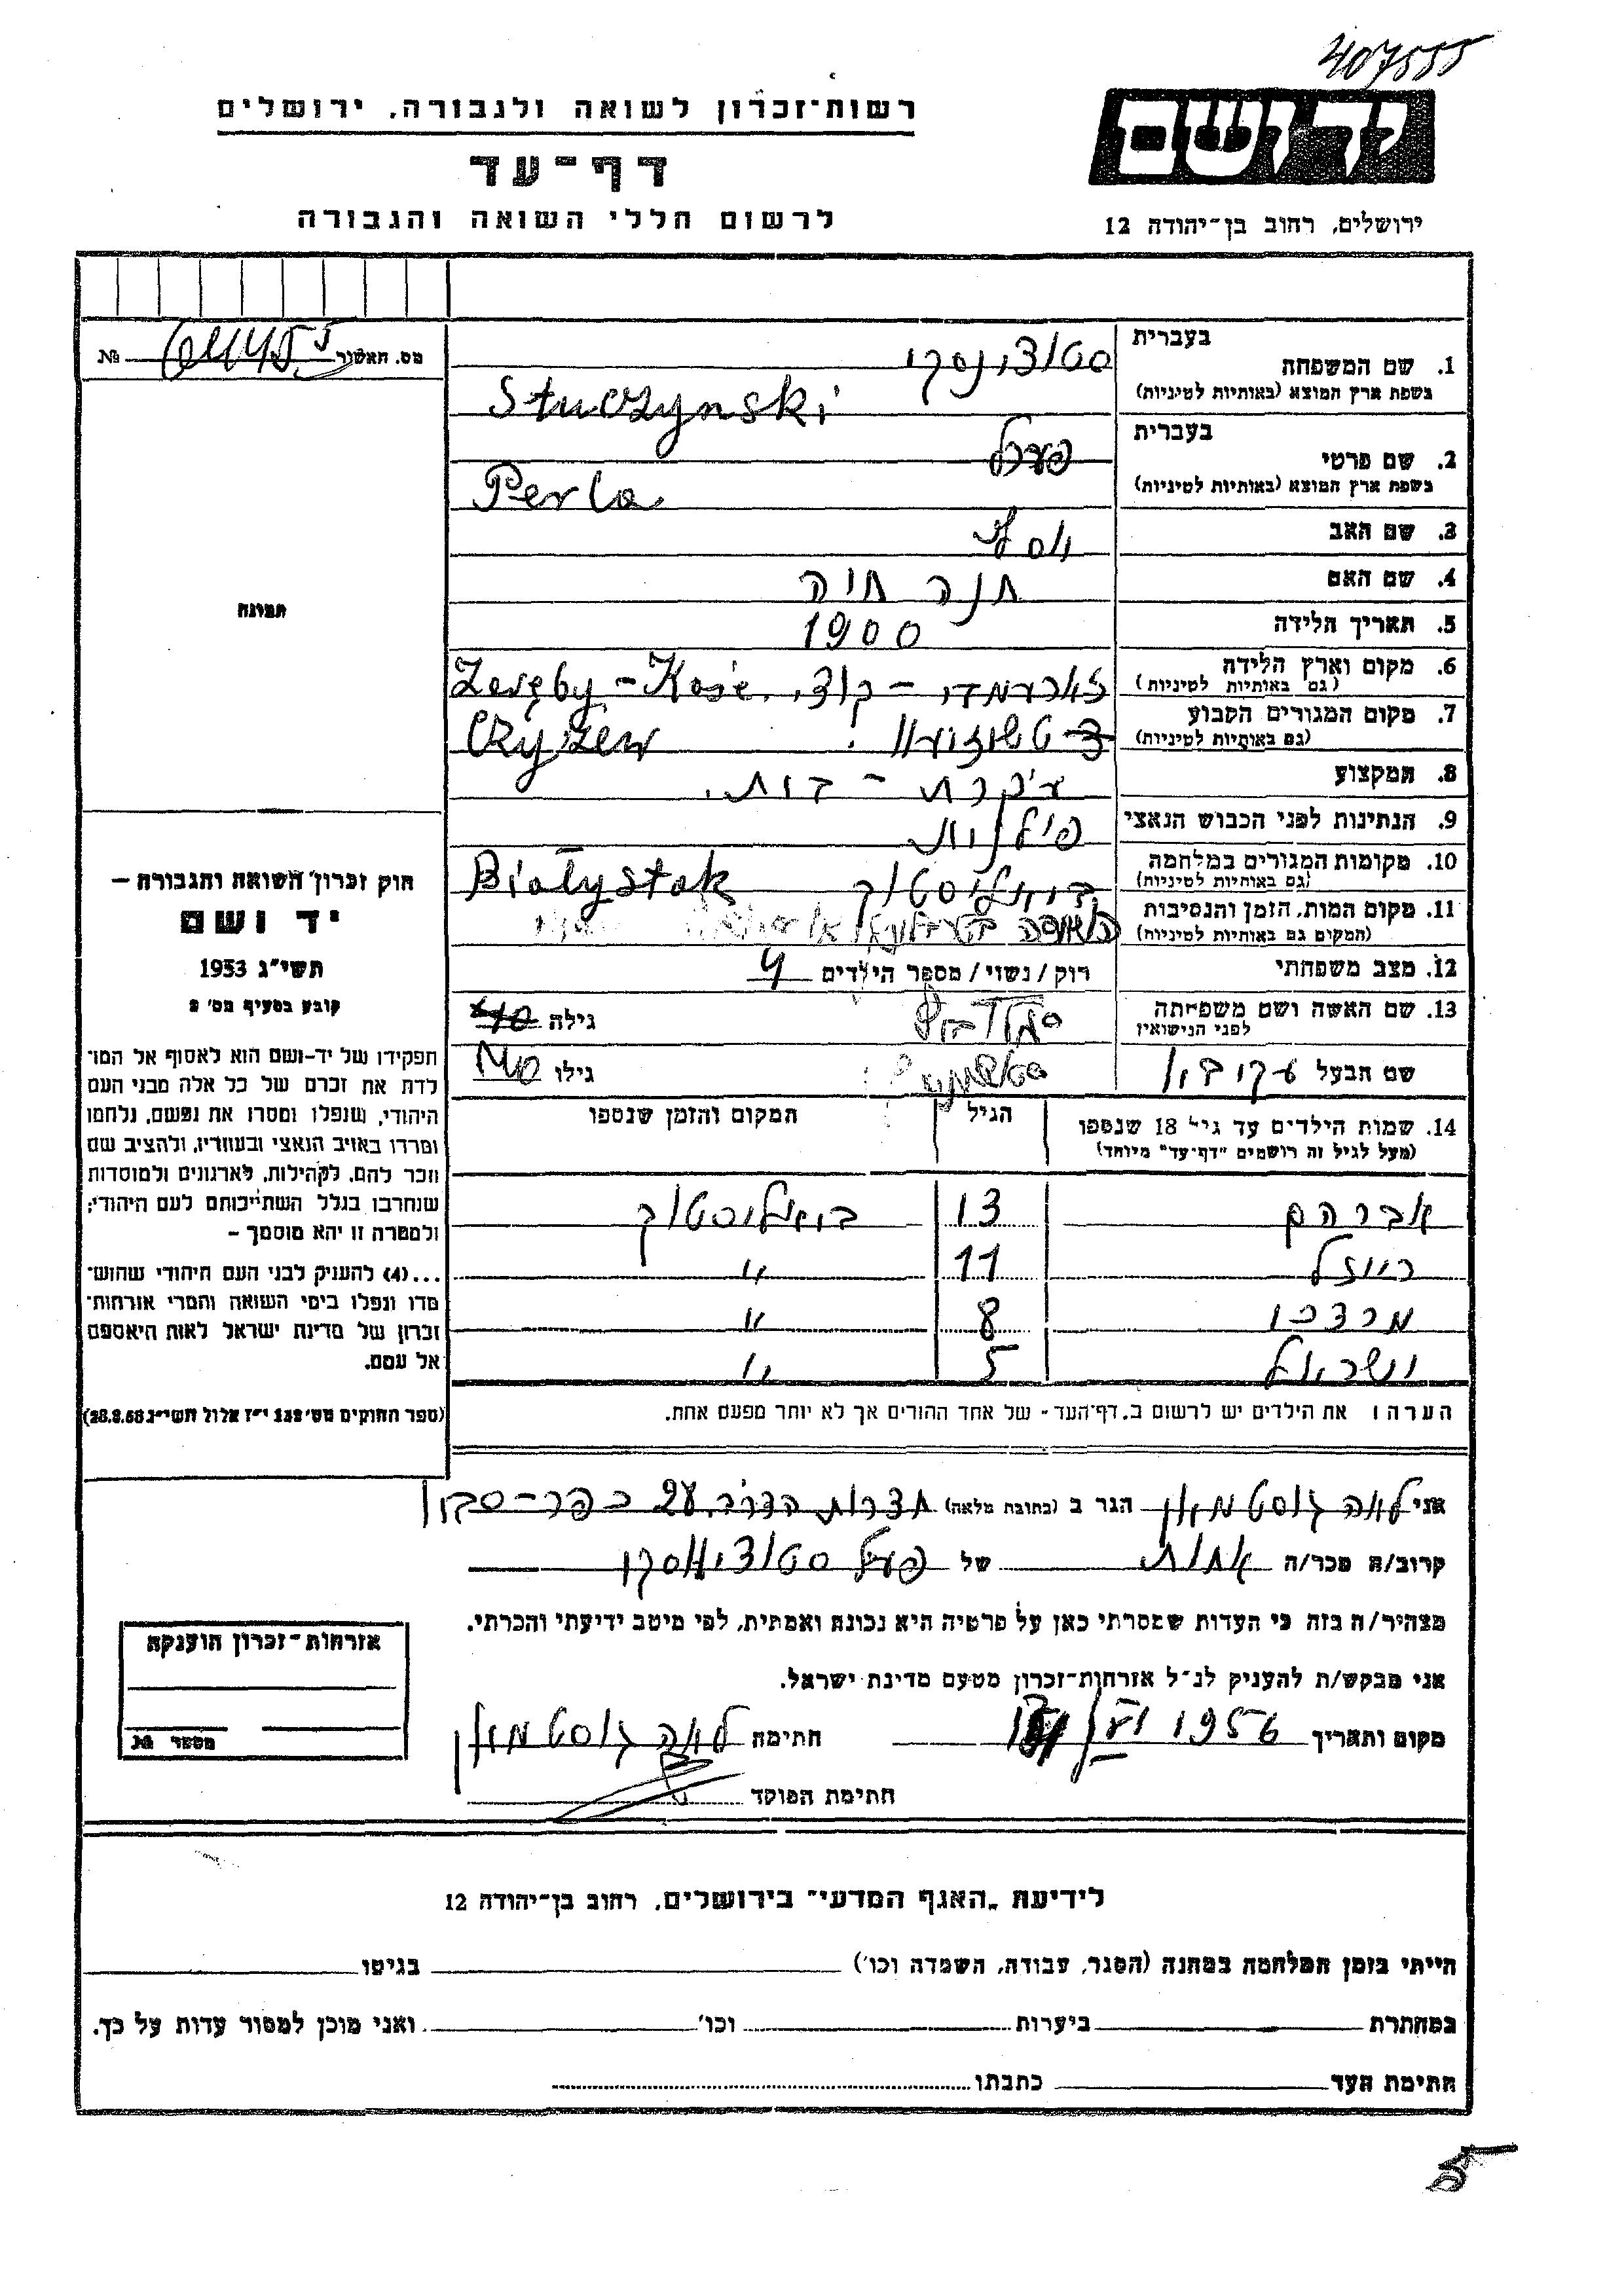 407555
יד ושם
ירושלים, רחוב בן־יהודה 12
רשות־זכרון לשואה ולגבורה, ירושלים
דף־עד
לרשום חללי השואה והגבורה
מס. תאשור №
בעברית
1. שם המשפחה סטוצ'ינסקי
בשפת ארץ המוצא (באותיות לטיניות) Stuczynski
בעברית
2. שם פרטי פערל
בשפת ארץ המוצא (באותיות לטיניות) Perla
3. שם האב
4. שם האם חנה חיה
5. תאריך הלידה 1900
6. מקום וארץ הלידה Zaręby-Kośc.
(גם באותיות לטיניות)
7. מקום המגורים הקבוע Czyżew
(גם באותיות לטיניות)
8. המקצוע עקרת־בית.
9. הנתינות לפני הכבוש הנאצי פולנית
10. מקומות המגורים במלחמה ביאליסטוק Białystok
(גם באותיות לטיניות)
11. מקום המות, הזמן והנסיבות
(המקום גם באותיות לטיניות)
12. מצב משפחתי רוק/נשוי/מספר הילדים 4
13. שם האשה ושם משפחתה גילה
לפני הנישואין
שם הבעל יעקב גילו
14. שמות הילדים עד גיל 18 שנספו הגיל המקום והזמן שנספו
(מעל לגיל זה רושמים "דף־עד" מיוחד)
אברהם 13 ביאליסטוק
רייזל 11 "
מרדכי 8 "
ישראל 5 "
הערה: את הילדים יש לרשום ב"דף־העד" של אחד ההורים אך לא יותר מפעם אחת.
תמונה
חוק זכרון השואה והגבורה —
יד ושם
תשי"ג 1953
קובע בסעיף מס' 2
תפקידו של יד-ושם הוא לאסוף אל המו־
לדת את זכרם של כל אלה מבני העם
היהודי, שנפלו ומסרו את נפשם, נלחמו
ומרדו באויב הנאצי ובעוזריו, ולהציב שם
וזכר להם, לקהילות, לארגונים ולמוסדות
שנחרבו בגלל השתייכותם לעם היהודי;
ולמטרה זו יהא מוסמך –
...(4) להעניק לבני העם היהודי שהוש־
מדו ונפלו בימי השואה והמרי אזרחות־
זכרון של מדינת ישראל לאות היאספם
אל עמם.
(ספר החוקים מס' 132 י"ז אלול תשי"ג 28.8.53)
אני לאה גוסטמאן הגר ב (כתובת מלאה) 28 כפר-סבא
קרוב/ה מכר/ה אחות של פערל סטוצ'ינסקי
מצהיר/ה בזה כי העדות שמסרתי כאן על פרטיה היא נכונה ואמתית, לפי מיטב ידיעתי והכרתי.
אני מבקש/ת להעניק לנ"ל אזרחות־זכרון מטעם מדינת ישראל.
מקום ותאריך 1956 חתימה לאה גוסטמאן
חתימת הפוקד
אזרחות־זכרון הוענקה
מספר №
לידיעת "האגף המדעי" בירושלים, רחוב בן־יהודה 12
הייתי בזמן המלחמה במחנה (הסגר, עבודה, השמדה וכו') בגיטו
במחתרת ביערות וכו' ואני מוכן למסור עדות על כך.
חתימת העד כתבתו